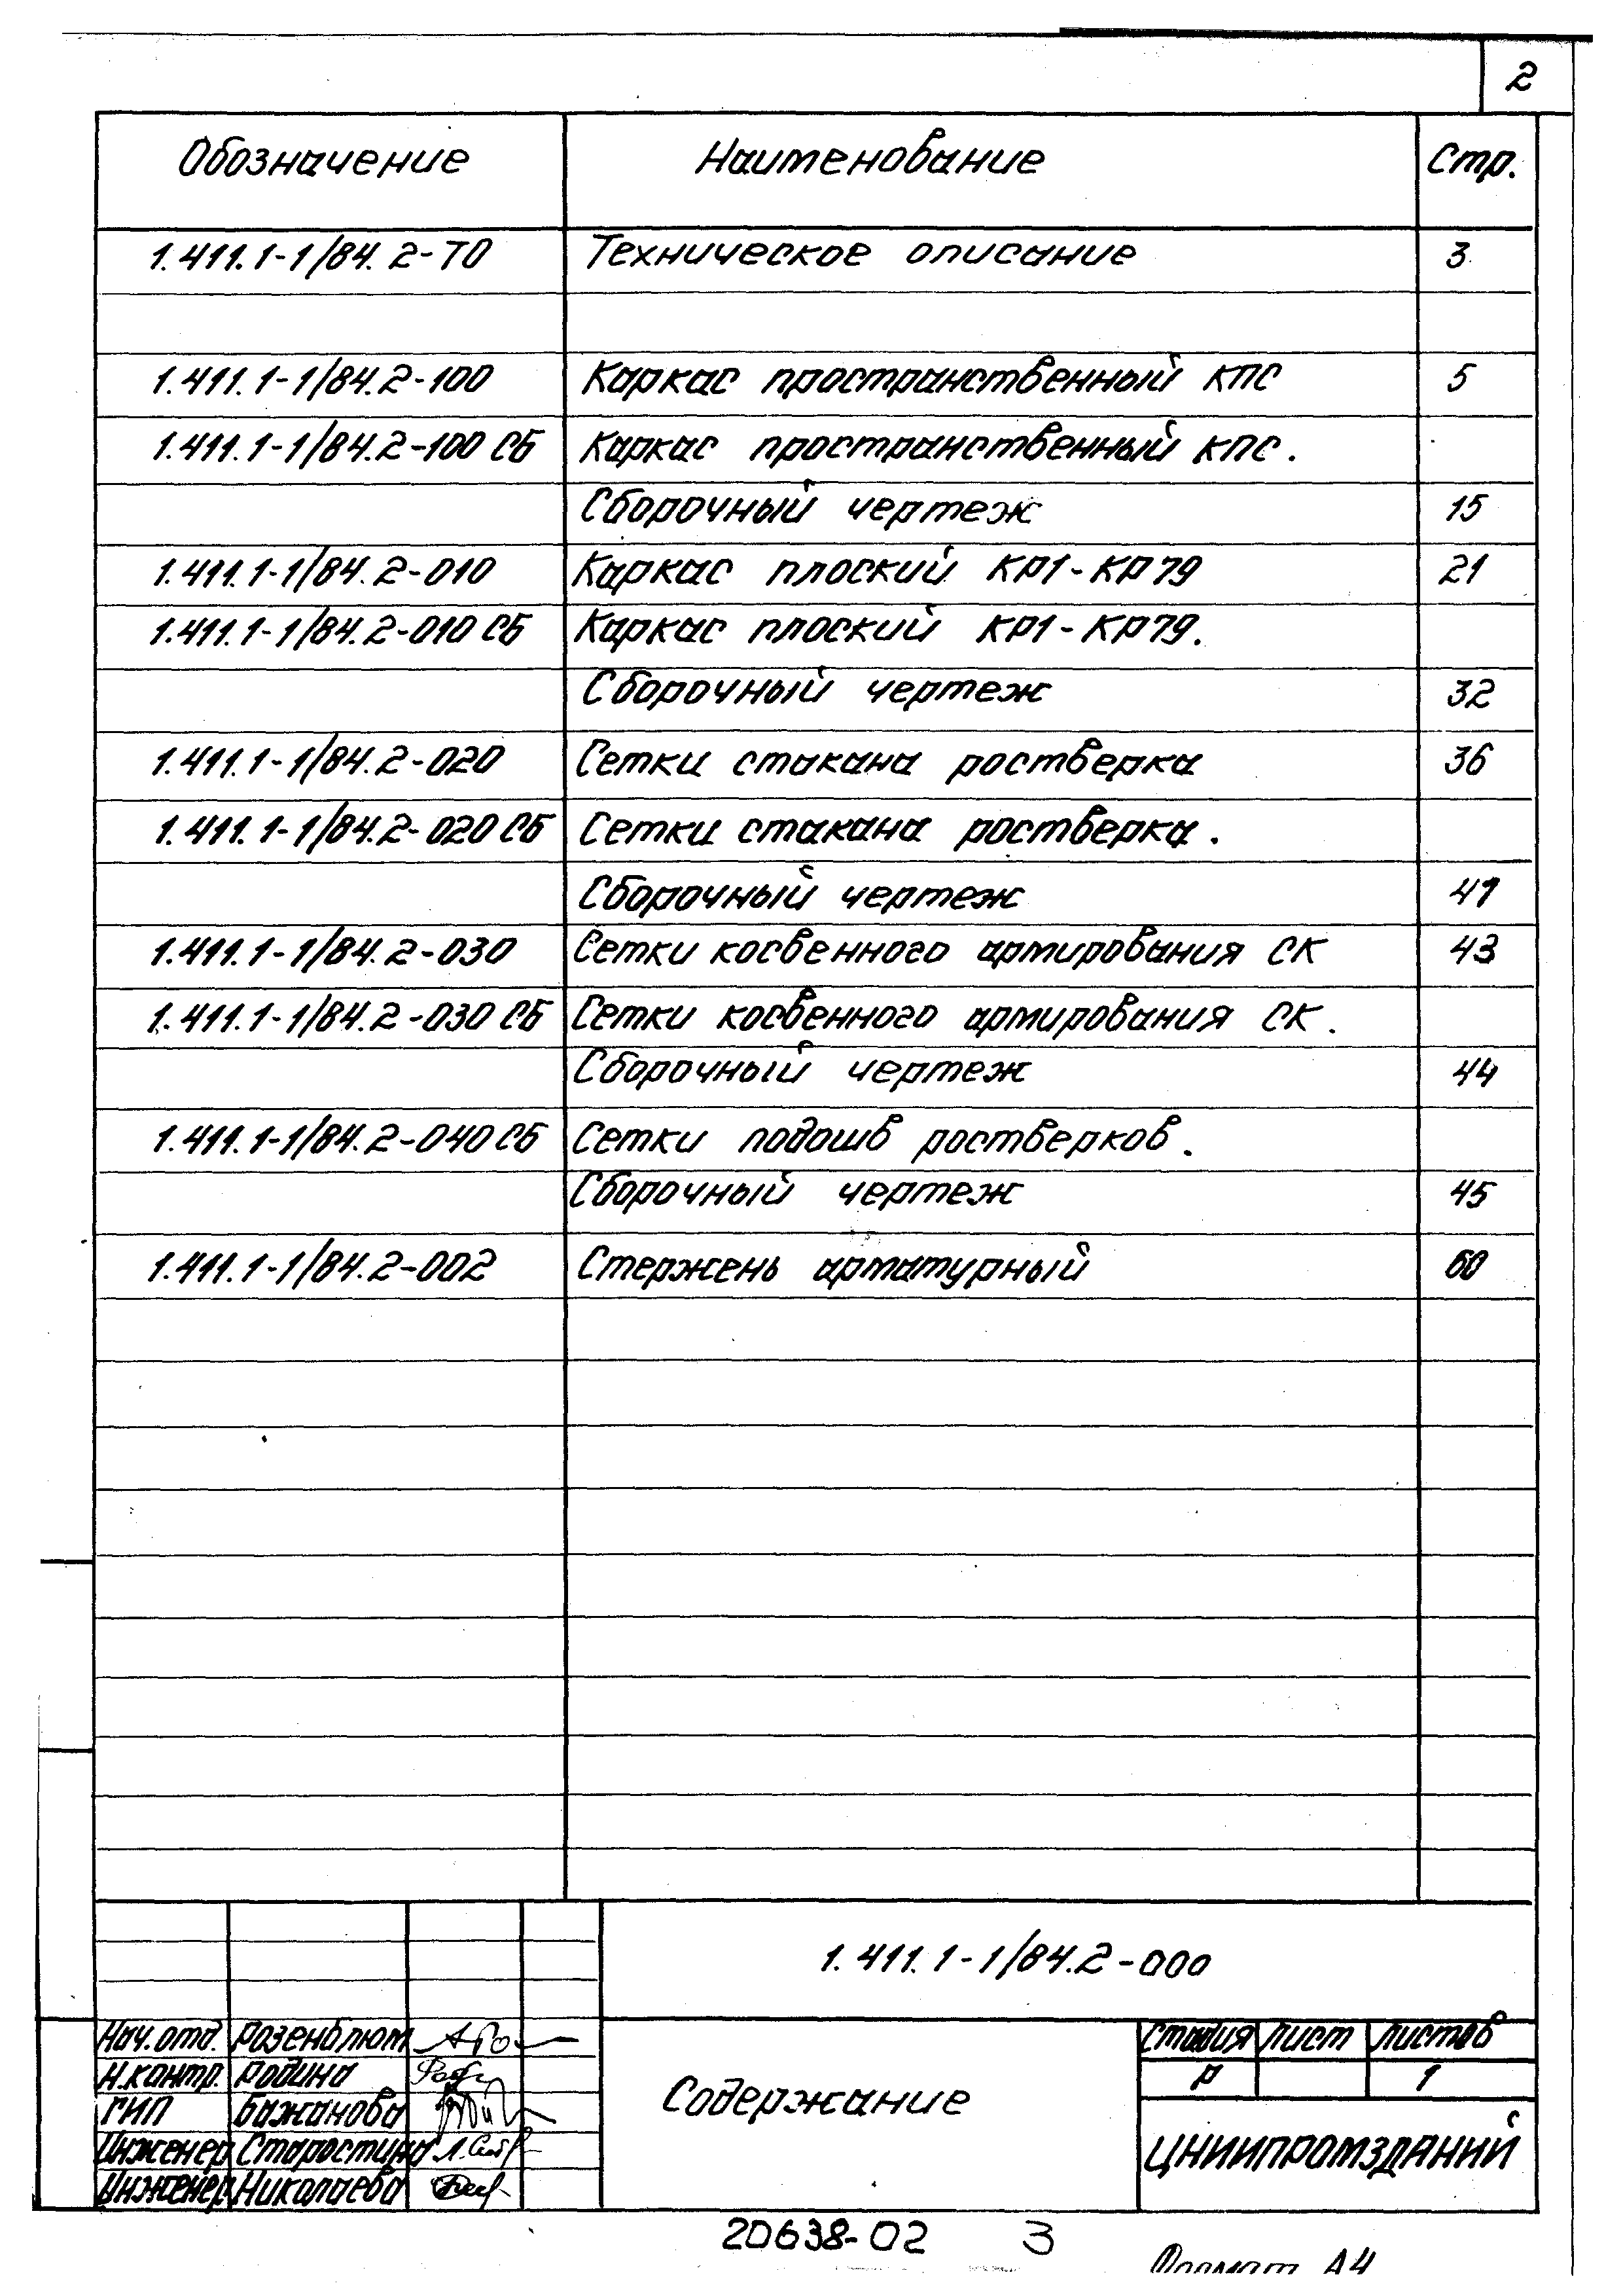 2
Обозначение Наименование Стр.
1.411.1-1/84.2-ТО Техническое описание 3
1.411.1-1/84.2-100 Каркас пространственный КПС 5
1.411.1-1/84.2-100 СБ Каркас пространственный КПС.
Сборочный чертеж 15
1.411.1-1/84.2-010 Каркас плоский КР1-КР79 21
1.411.1-1/84.2-010 СБ Каркас плоский КР1-КР79.
Сборочный чертеж 32
1.411.1-1/84.2-020 Сетки стакана ростверка 36
1.411.1-1/84.2-020 СБ Сетки стакана ростверка.
Сборочный чертеж 41
1.411.1-1/84.2-030 Сетки косвенного армирования СК 43
1.411.1-1/84.2-030 СБ Сетки косвенного армирования СК.
Сборочный чертеж 44
1.411.1-1/84.2-040 СБ Сетки подошв ростверков.
Сборочный чертеж 45
1.411.1-1/84.2-002 Стержень арматурный 60
1.411.1-1/84.2-000
Нач.отд. Розенблюм
Н.контр. Родина
ГИП Бажанова
Инженер Старостина
Инженер Николаева
Содержание
Стадия Лист Листов
Р 1
ЦНИИПРОМЗДАНИЙ
20638-02 3
Формат А4